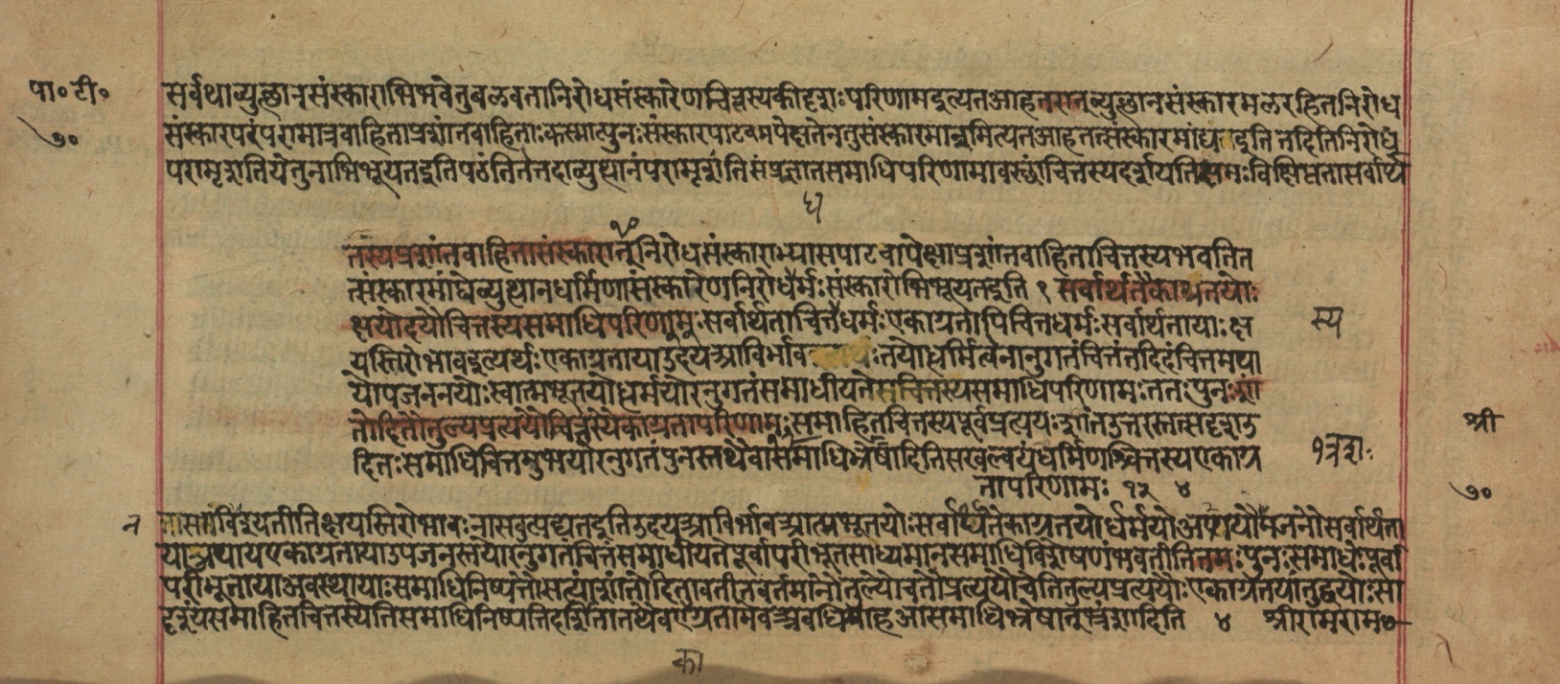 पा॰टी॰
७०
सर्वथाव्युत्थानसंस्काराभिभवेतुबलवतानिरोधसंस्कारेणचित्तस्यकीदृशःपरिणामइत्यतआहतस्तत्व्युत्थानसंस्कारमलेरहितनिरोध
संस्कारपरंपरामात्रवाहिताप्रशांतवाहिताःकस्मात्पुनःसंस्कारपाटवमपेक्षतेनतुसंस्कारमात्रमित्यतआहतत्संस्कारमांद्यतइति तदितिनिरोधं
परामृशतियेतुनाभिभूयतइतिपठंतितेतदाव्युत्थानंपरामृशंतिसंप्रज्ञातसमाधिपरिणामावस्थांचित्तस्यदर्शयतिक्षमःविक्षिप्ततासर्वार्थ
ध
तस्यप्रशांतवाहितासंस्कारात्निरोधसंस्काराभ्यासपाटवापेक्षाप्रशांतवाहिताचित्तस्यभवतित
त्संस्कारमांद्येव्युत्थानधर्मिणासंस्कारेणनिरोधधर्मःसंस्कारोभिभूयतइति ९ सर्वार्थतैकाग्रतयोः
क्षयोदयौचित्तस्यसमाधिपरिणामःसर्वार्थताचित्तधर्मःएकाग्रतापिचित्तधर्मःसर्वार्थतायाःक्ष
स्य
यस्तिरोभावइत्यर्थःएकाग्रतायाउदयआविर्भावइत्यर्थःतयोर्धर्मित्वेनानुगतंचित्तंतदिदंचित्तमपा
योपजननयोःस्वात्मभूतयोर्धर्मयोरनुगतंसमाधीयतेसचित्तस्यसमाधिपरिणामःततःपुनःशा
तोदितौतुल्यप्रत्ययौचित्तस्यैकाग्रतापरिणामःसमाहितचित्तस्यपूर्वप्रत्ययःशांतउत्तरस्तत्सदृशउ
श्री
दितःसमाधिचित्तमुभयोरनुगतंपुनस्तथैवासमाधिभ्रेषादितिसखल्वयंधर्मिणश्चित्तस्यएकाग्र
तापरिणामः १२ ४
७०
न
तासतांविदूयतीतिक्षयस्तिरोभावःनासदुत्पद्यतइतिउदयआविर्भावआत्मभूतयोःसर्वार्थतैकाग्रतयोर्धर्मयोअपायोपजननौसर्वार्थता
याअपायएकाग्रतायाउपजनस्तयोरनुगतंचित्तंसमाधीयतेपूर्वापरीभूतसाध्यमानसमाधिविशेषणंभवतीतिततःपुनःसमाधेःपूर्वा
परीभूतायाअवस्थायाःसमाधिनिष्पत्तौसत्यांशांतोदितावतीतवर्तमानौतुल्यौचतौप्रत्ययौचेतितुल्यप्रत्ययौःएकाग्रतायांतुद्वयोःसा
दृश्यंसमाहितचित्तस्येतिसमाधिनिष्पत्तिदर्शितातथैवएकाग्रतामेवअवधिमाहआसमाधिभ्रेषात्भ्रंशादिति ४ श्रीरामराम
का